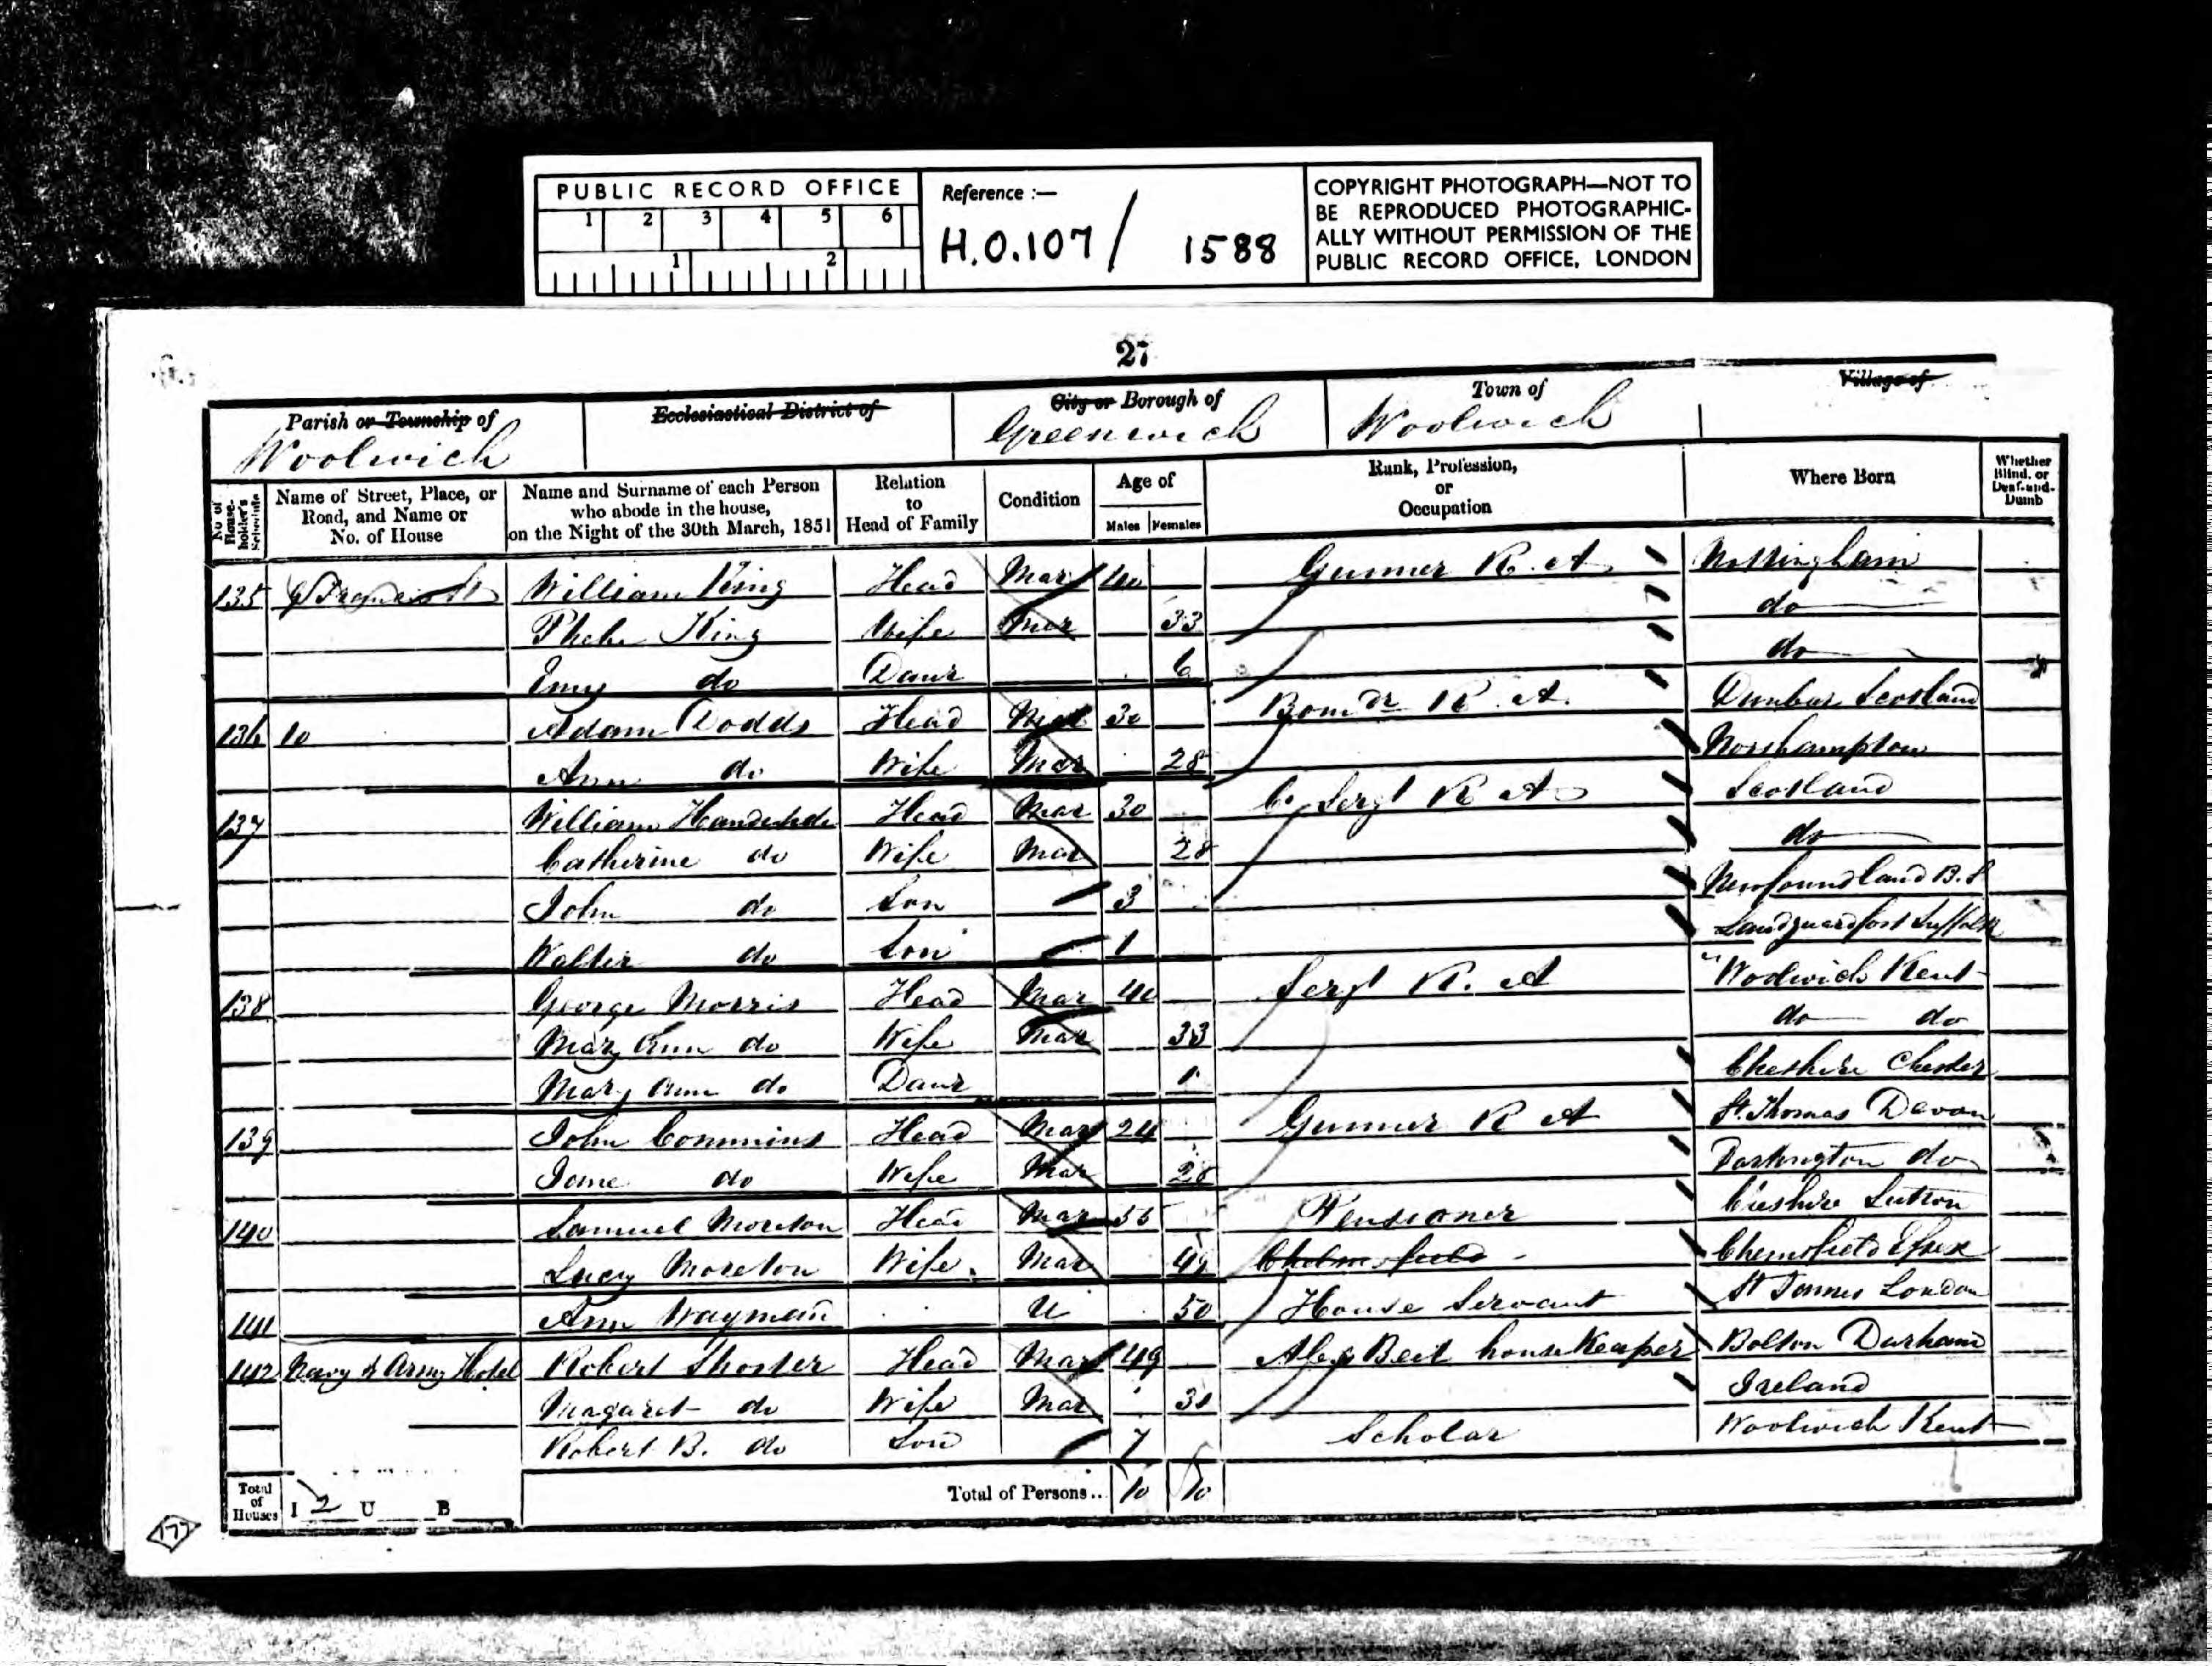 PUBLIC RECORD OFFICE
1 2 3 4 5 6
1 2
Reference :—
H.O.107/ 1588
COPYRIGHT PHOTOGRAPH—NOT TO
BE REPRODUCED PHOTOGRAPHIC-
ALLY WITHOUT PERMISSION OF THE
PUBLIC RECORD OFFICE, LONDON
27
Parish or Township of Woolwich
Ecclesiastical District of
City or Borough of Greenwich
Town of Woolwich
Village of
No of House-holder's Schedule
Name of Street, Place, or Road, and Name or No. of House
Name and Surname of each Person who abode in the house, on the Night of the 30th March, 1851
Relation to Head of Family
Condition
Age of
Males Females
Rank, Profession, or Occupation
Where Born
Whether Blind, or Deaf-and-Dumb
135 William King Head Mar 40 Gunner R. A Nottingham
Phebe King Wife Mar 33 do
do Daur 6 do
136 10 Adam Dodds Head Mar 30 Bomdr R. A. Dunbar Scotland
Ann do Wife Mar 28 Northampton
137 William Head Mar 30 Sergt R A Scotland
Catherine do Wife Mar 28 do
John do Son 3 Newfoundland
Walter do Son 1 Landguardfort Suffolk
138 George Morris Head Mar 40 Sergt R. A Woolwich Kent
Mary Ann do Wife Mar 33 do do
Mary Ann do Daur 1 Cheshire Chester
139 John Commins Head Mar 24 Gunner R A St. Thomas Devon
Jane do Wife Mar 28 do
140 Samuel Moreton Head Mar 55 Pensioner Cheshire Sutton
Lucy Moreton Wife. Mar 49 Chelmsford Chemsford Essex
141 Ann Wayman U 50 House Servant St James London
142 Navy & Army Hotel Robert Shorter Head Mar 49 Beer house Keeper Bolton Durham
Magaret do Wife Mar 30 Ireland
Robert B. do Son 7 Scholar Woolwich Kent
Total of Houses I 2 U B
Total of Persons.. 10 10
177